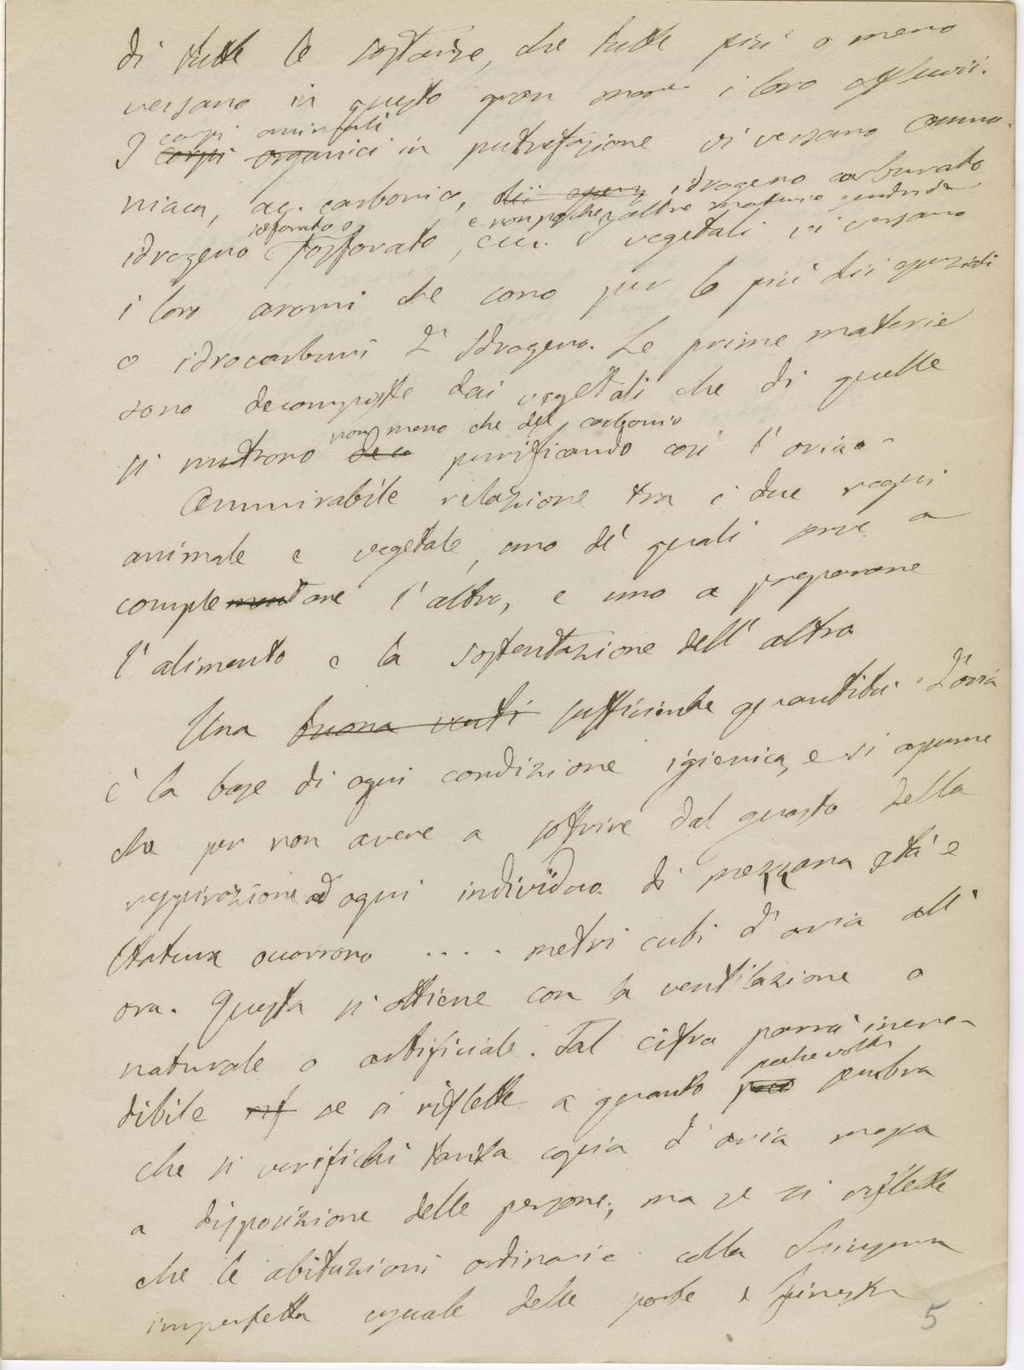 di tutte le sostanze, che tutte più o meno
versano in questo gran mare i loro effluvii.
corpi animali
I corpi organici in putrefazione vi versano ammo-
niaca, ac. carbonico, idrogeno carburato
solforato e e non poche altre materie
idrogeno fosforato, ecc. I vegetali vi versano
i loro aromi che sono per lo più
o idrocarburi d'Idrogeno. Le prime materie
sono decomposte dai vegetali che di quelle
non meno che del carbonio
si nutrono purificando così l'aria.
Ammirabile relazione tra i due regni
animale e vegetale, uno de' quali serve a
completare l'altro, e uno a preparare
l'alimento e la sostentazione dell'altro
Una buona venti sufficiente quantità d'aria
è la base di ogni condizione igienica, e si
che per non avere a soffrire dal guasto della
respirazione ad ogni individuo di mezzana età e
statura occorrono .... metri cubi d'aria all'
ora. Questa si ottiene con la ventilazione o
naturale o artificiale. Tal cifra parrà incre-
poche volte
dibile se si riflette a quanto sembra
che si verifichi tanta copia d'aria messa
a disposizione delle persone; ma se si riflette
che le abitazioni ordinarie alla
imperfetta usuale delle porte e finestre
5